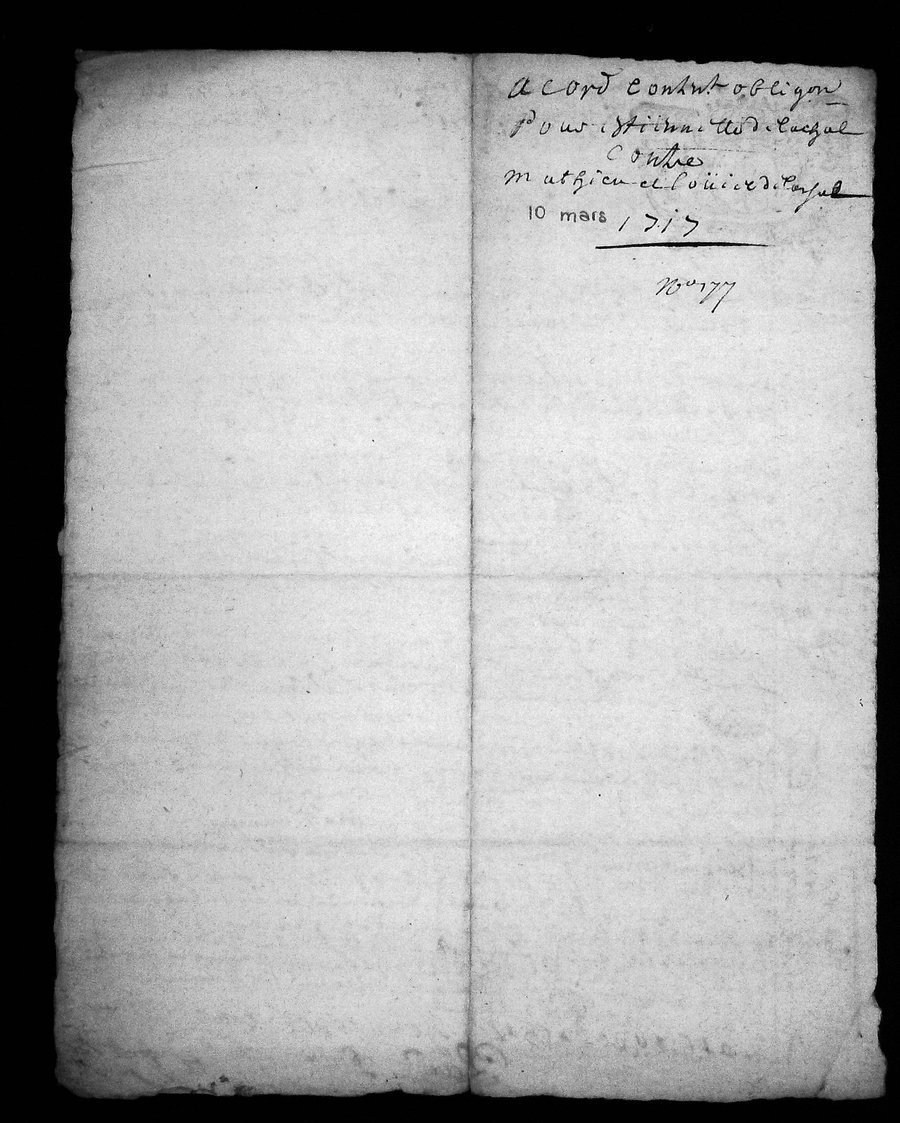 acord contnt obligon
Pour estiennette delachal
Contre
mathieu et loüise delachal
10 mars 1717
No 177